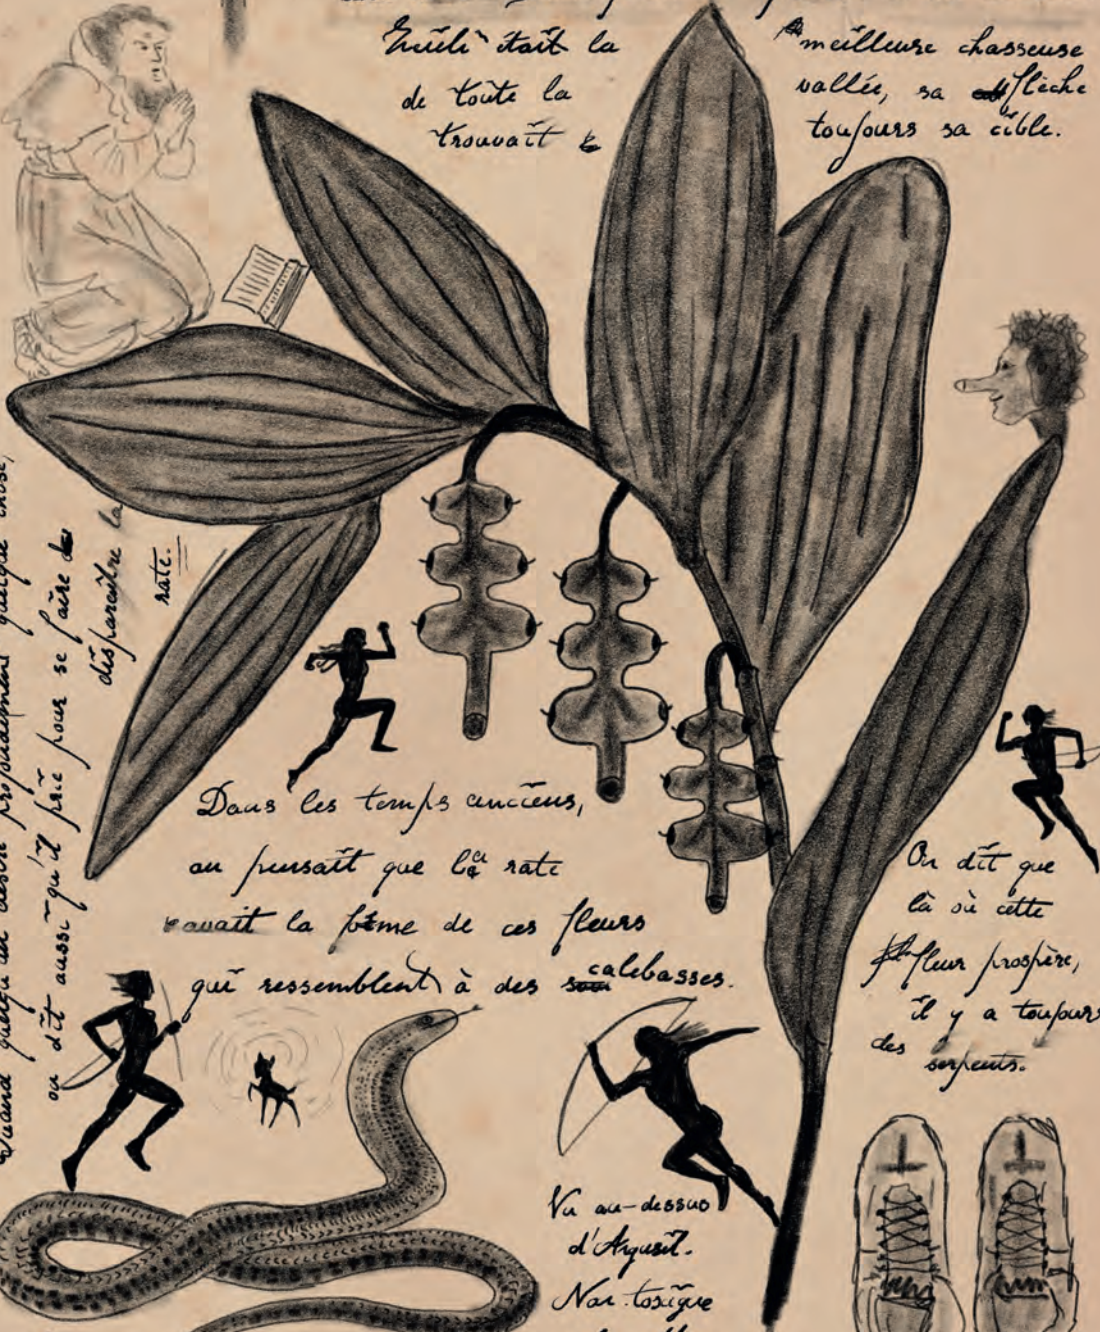 était la meilleure chasseuse
de toute la vallée, sa flèche
trouvait toujours sa cible.
Quand quelqu'un désire profondément quelque chose,
on dit aussi qu'il prie pour se faire
disparaître la
rate.
Dans les temps anciens,
on pensait que la rate
avait la forme de ces fleurs
qui ressemblent à des calebasses.
On dit que
là où cette
fleur prospère,
il y a toujours
des serpents.
Vu au-dessus
Non toxique